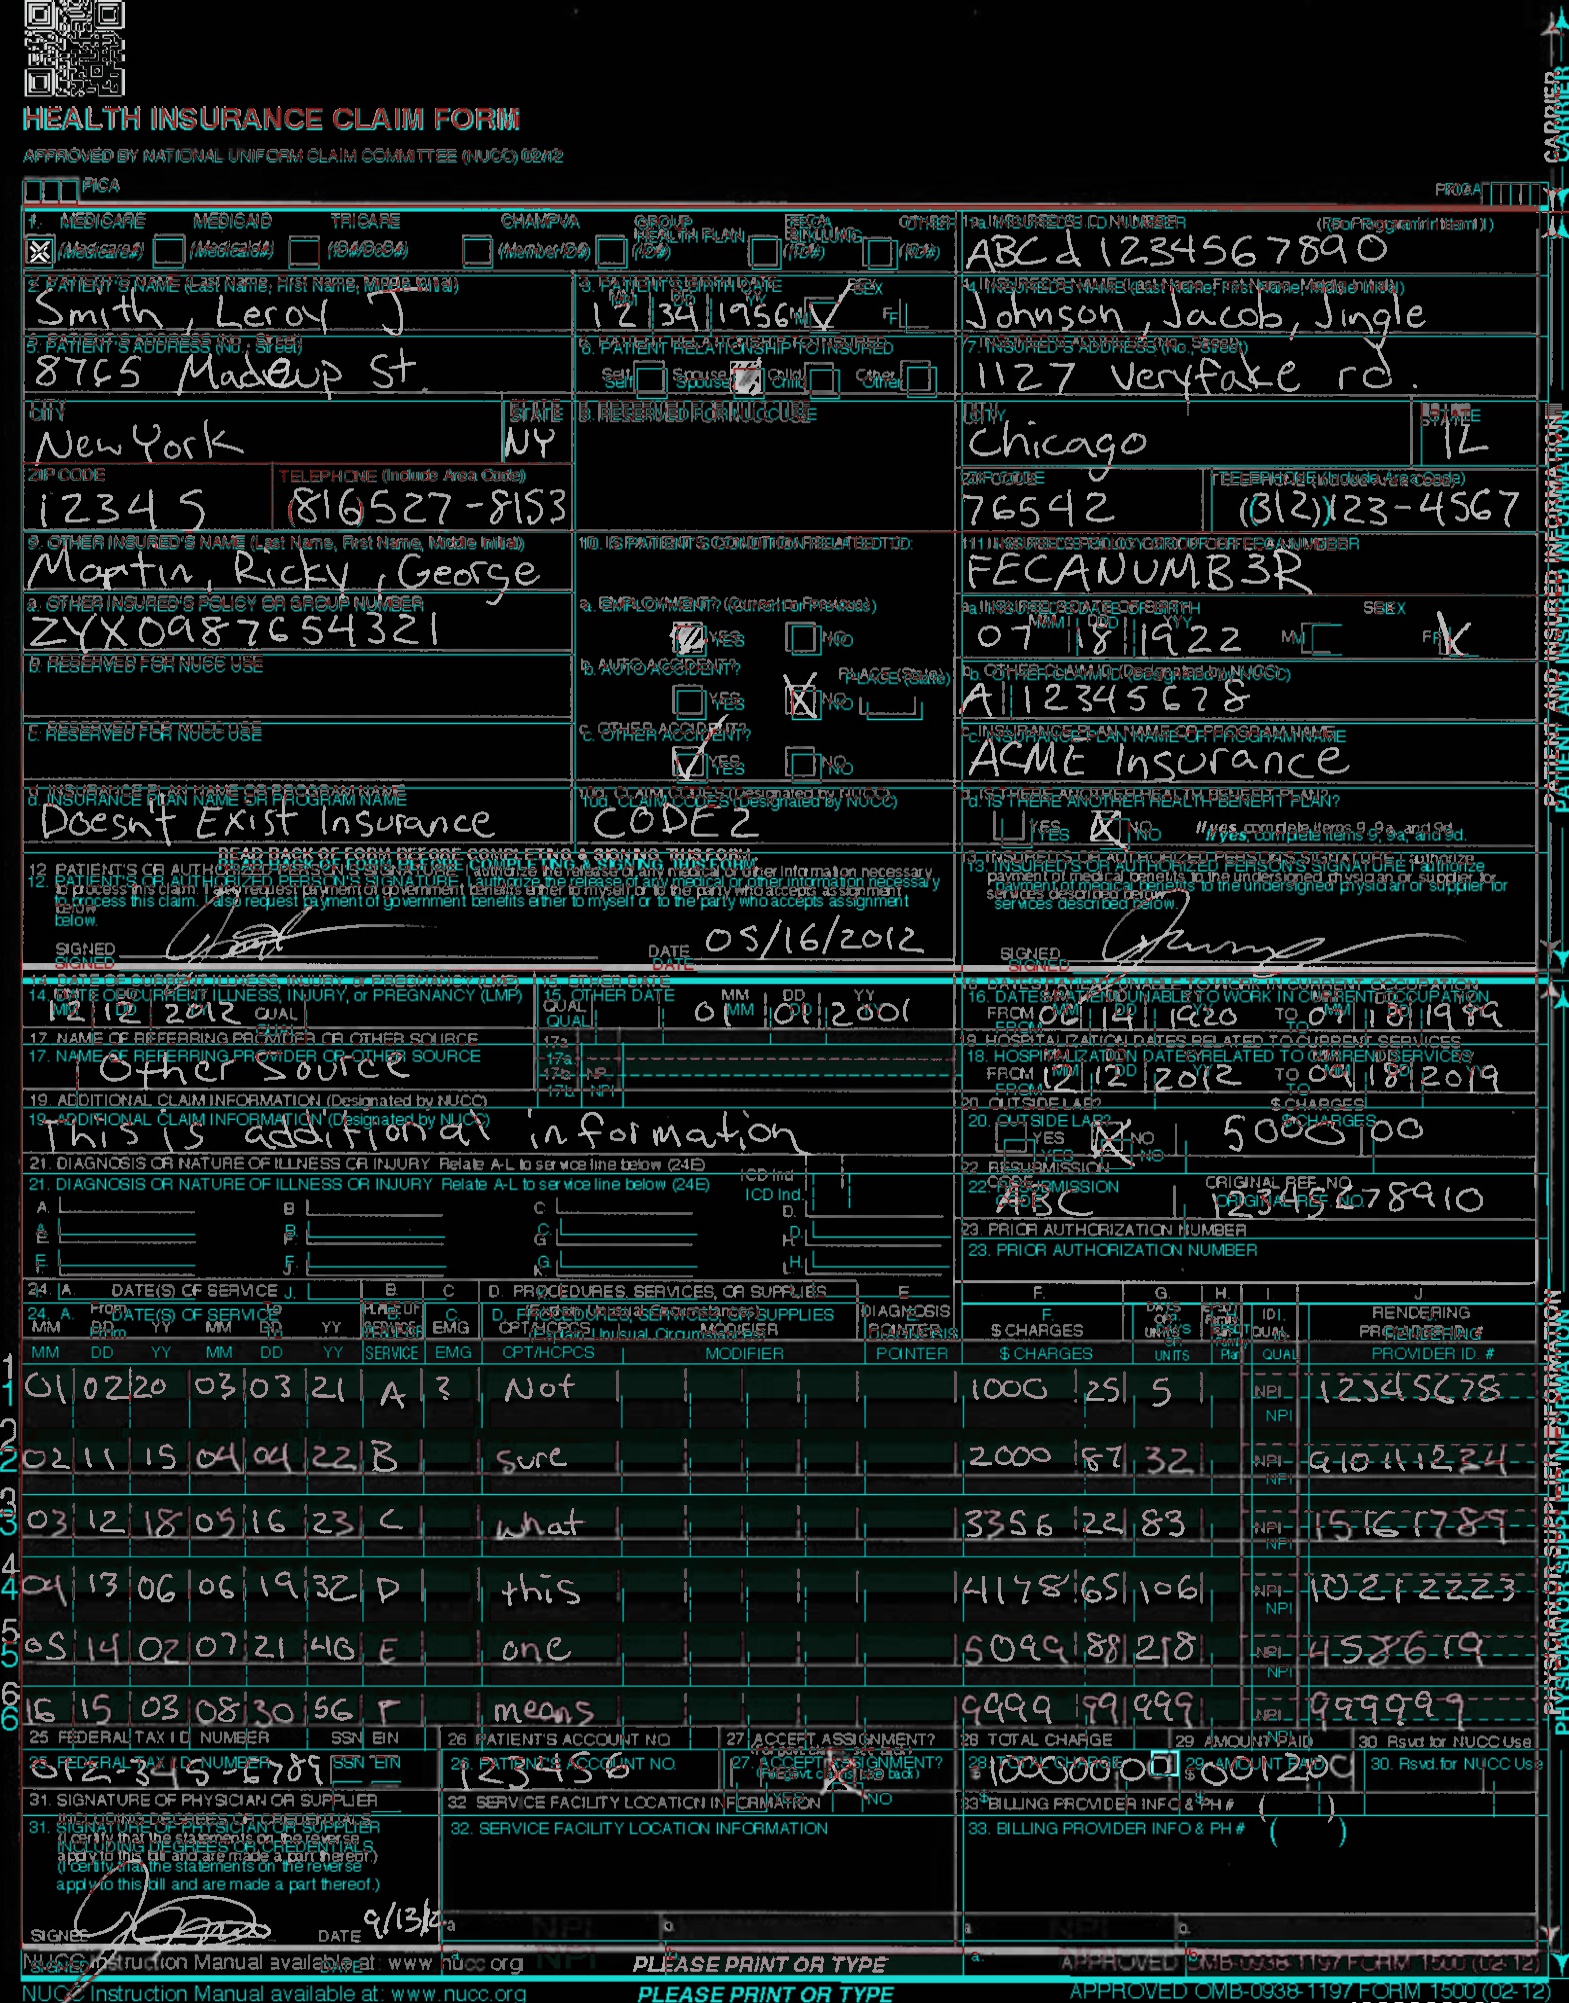 HEALTH INSURANCE CLAIM FORM
APPROVED BY NATIONAL UNIFORM CLAIM COMMITTEE (NUCC) 02/12
PICA
PICA
CARRIER
1. MEDICARE MEDICAID TRICARE CHAMPVA GROUP HEALTH PLAN FECA BLK LUNG OTHER
(Medicare#) (Medicaid#) (ID#/DoD#) (Member ID#) (ID#) (ID#) (ID#)
1a. INSURED'S I.D. NUMBER (For Program in Item 1)
ABCd 1234567890
2. PATIENT'S NAME (Last Name, First Name, Middle Initial)
Smith, Leroy J
3. PATIENT'S BIRTH DATE SEX
MM DD YY
12 34 1956 M F
4. INSURED'S NAME (Last Name, First Name, Middle Initial)
Johnson, Jacob, Jingle
5. PATIENT'S ADDRESS (No., Street)
8765 Madeup St.
6. PATIENT RELATIONSHIP TO INSURED
Self Spouse Child Other
7. INSURED'S ADDRESS (No., Street)
1127 Veryfake rd.
CITY STATE
New York NY
8. RESERVED FOR NUCC USE
CITY STATE
Chicago IL
ZIP CODE TELEPHONE (Include Area Code)
12345 (816) 527-8153
ZIP CODE TELEPHONE (Include Area Code)
76542 (312) 123-4567
9. OTHER INSURED'S NAME (Last Name, First Name, Middle Initial)
Martin, Ricky, George
10. IS PATIENT'S CONDITION RELATED TO:
11. INSURED'S POLICY GROUP OR FECA NUMBER
FECANUMB3R
a. OTHER INSURED'S POLICY OR GROUP NUMBER
ZYX0987654321
a. EMPLOYMENT? (Current or Previous)
YES NO
a. INSURED'S DATE OF BIRTH SEX
MM DD YY
07 18 1922 M F
b. RESERVED FOR NUCC USE
b. AUTO ACCIDENT? PLACE (State)
YES NO
b. OTHER CLAIM ID (Designated by NUCC)
A 12345678
c. RESERVED FOR NUCC USE
c. OTHER ACCIDENT?
YES NO
c. INSURANCE PLAN NAME OR PROGRAM NAME
ACME Insurance
d. INSURANCE PLAN NAME OR PROGRAM NAME
Doesn't Exist Insurance
10d. CLAIM CODES (Designated by NUCC)
CODE2
d. IS THERE ANOTHER HEALTH BENEFIT PLAN?
YES NO If yes, complete items 9, 9a, and 9d.
READ BACK OF FORM BEFORE COMPLETING & SIGNING THIS FORM.
12. PATIENT'S OR AUTHORIZED PERSON'S SIGNATURE I authorize the release of any medical or other information necessary
to process this claim. I also request payment of government benefits either to myself or to the party who accepts assignment
below.
SIGNED DATE 05/16/2012
13. INSURED'S OR AUTHORIZED PERSON'S SIGNATURE I authorize
payment of medical benefits to the undersigned physician or supplier for
services described below.
SIGNED
PATIENT AND INSURED INFORMATION
14. DATE OF CURRENT ILLNESS, INJURY, or PREGNANCY (LMP)
MM DD YY
12 12 2012 QUAL.
15. OTHER DATE MM DD YY
QUAL. 01 01 2001
16. DATES PATIENT UNABLE TO WORK IN CURRENT OCCUPATION
FROM 06 14 1920 TO 07 18 1989
17. NAME OF REFERRING PROVIDER OR OTHER SOURCE
Other Source
17a.
17b. NPI
18. HOSPITALIZATION DATES RELATED TO CURRENT SERVICES
FROM 12 12 2012 TO 09 18 2019
19. ADDITIONAL CLAIM INFORMATION (Designated by NUCC)
This is additional information
20. OUTSIDE LAB? $ CHARGES
YES NO 5000 00
21. DIAGNOSIS OR NATURE OF ILLNESS OR INJURY Relate A-L to service line below (24E) ICD Ind.
A. B. C. D.
E. F. G. H.
22. RESUBMISSION CODE ORIGINAL REF. NO.
ABC 12345678910
23. PRIOR AUTHORIZATION NUMBER
24. A. DATE(S) OF SERVICE B. C. D. PROCEDURES, SERVICES, OR SUPPLIES E. F. G. H. I. J.
From To PLACE OF SERVICE EMG (Explain Unusual Circumstances) DIAGNOSIS POINTER
MM DD YY MM DD YY CPT/HCPCS MODIFIER $ CHARGES DAYS OR UNITS ID. QUAL. RENDERING PROVIDER ID. #
1 01 02 20 03 03 21 A ? Not 1000 25 5 NPI 12345678
2 02 11 15 04 04 22 B sure 2000 87 32 NPI 910111234
3 03 12 18 05 16 23 C what 3356 22 83 NPI 15161789
4 04 13 06 06 19 32 D this 4178 65 106 NPI 10212223
5 05 14 02 07 21 40 E one 5099 88 218 NPI 458619
6 16 15 03 08 30 56 F means 9999 99 999 NPI 999999
25. FEDERAL TAX I.D. NUMBER SSN EIN
012-345-6789
26. PATIENT'S ACCOUNT NO.
123456
27. ACCEPT ASSIGNMENT?
(For govt. claims, see back)
YES NO
28. TOTAL CHARGE
$
29. AMOUNT PAID
$
30. Rsvd.for NUCC Use
31. SIGNATURE OF PHYSICIAN OR SUPPLIER
INCLUDING DEGREES OR CREDENTIALS
(I certify that the statements on the reverse
apply to this bill and are made a part thereof.)
SIGNED DATE
32. SERVICE FACILITY LOCATION INFORMATION
a. NPI
33. BILLING PROVIDER INFO & PH # ( )
a. NPI b.
PHYSICIAN OR SUPPLIER INFORMATION
NUCC Instruction Manual available at: www.nucc.org PLEASE PRINT OR TYPE APPROVED OMB-0938-1197 FORM 1500 (02-12)